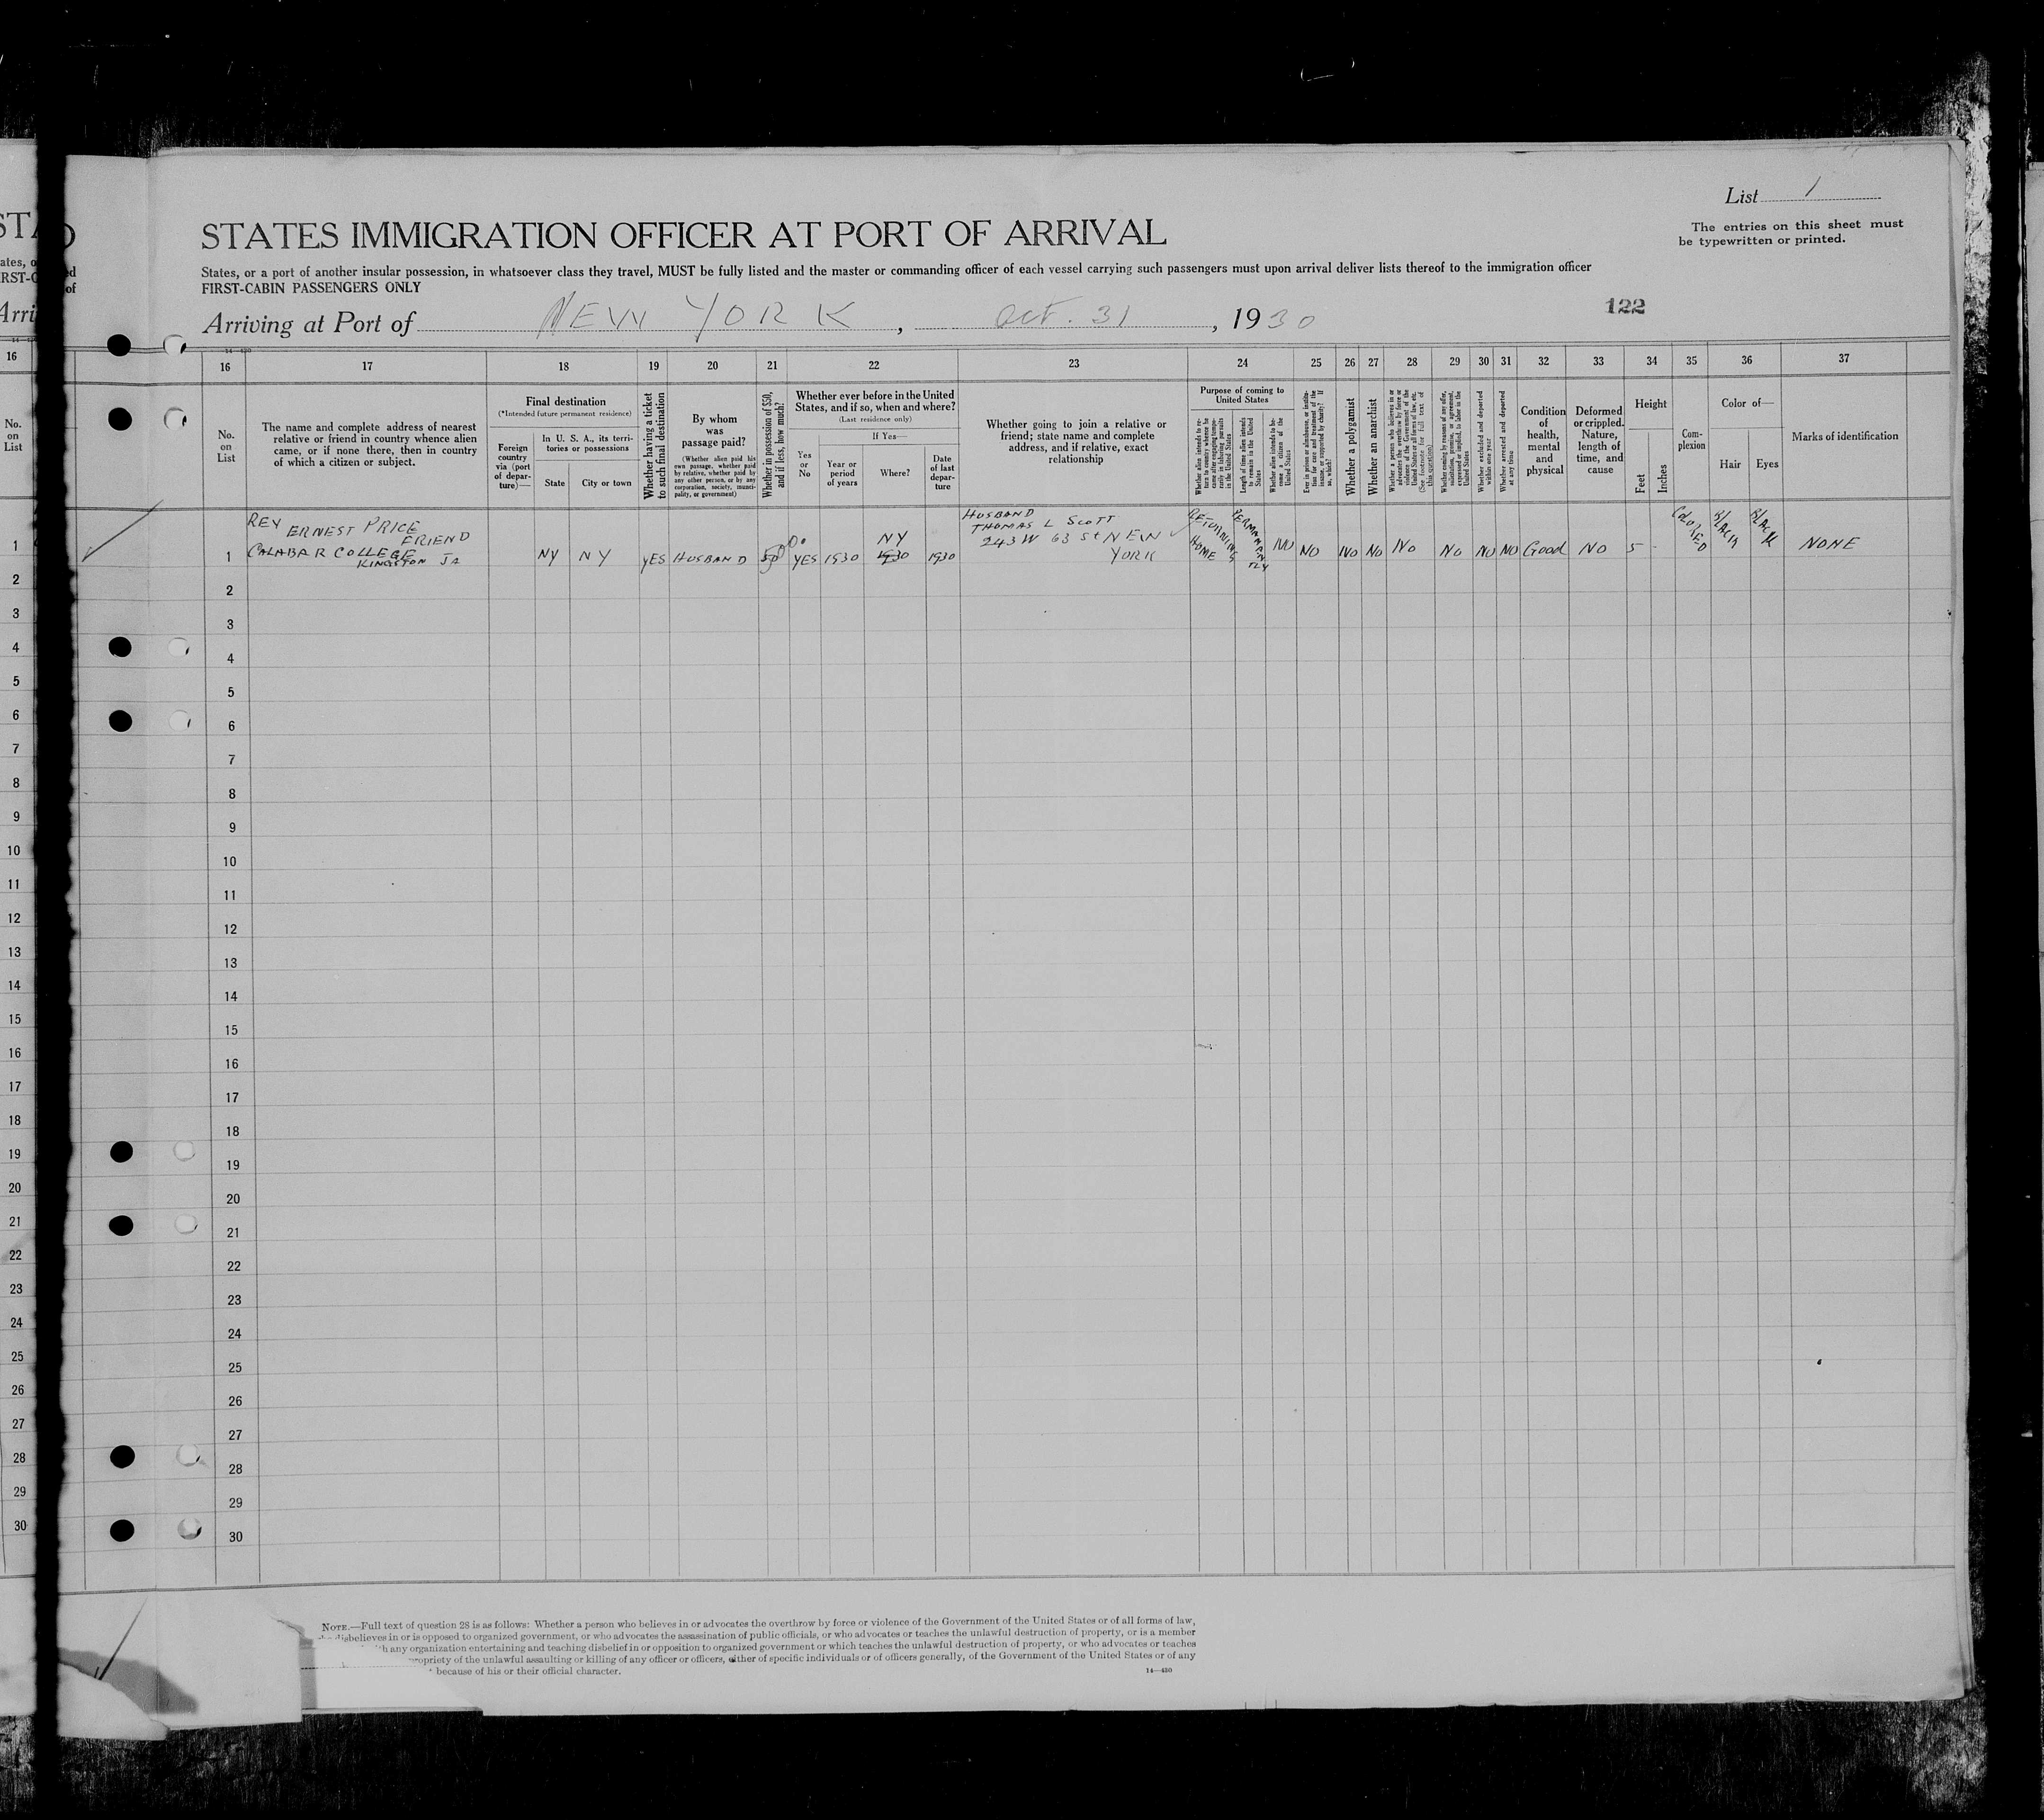 List 1
The entries on this sheet must
be typewritten or printed.
STATES IMMIGRATION OFFICER AT PORT OF ARRIVAL
States, or a port of another insular possession, in whatsoever class they travel, MUST be fully listed and the master or commanding officer of each vessel carrying such passengers must upon arrival deliver lists thereof to the immigration officer
FIRST-CABIN PASSENGERS ONLY
122
Arriving at Port of NEW YORK, Oct. 31, 1930
16 17 18 19 20 21 22 23 24 25 26 27 28 29 30 31 32 33 34 35 36 37
No.
on
List
The name and complete address of nearest
relative or friend in country whence alien
came, or if none there, then in country
of which a citizen or subject.
Final destination
(*Intended future permanent residence)
Foreign
country
via (port
of depar-
ture)—
In U. S. A., its terri-
tories or possessions
State
City or town
Whether having a ticket
to such final destination
By whom
was
passage paid?
(Whether alien paid his
own passage, whether paid
by relative, whether paid by
any other person, or by any
corporation, society, munici-
pality, or government)
Whether in possession of $50,
and if less, how much?
Whether ever before in the United
States, and if so, when and where?
(Last residence only)
Yes
or
No
If Yes—
Year or
period
of years
Where?
Date
of last
depar-
ture
Whether going to join a relative or
friend; state name and complete
address, and if relative, exact
relationship
Purpose of coming to
United States
Whether alien intends to re-
turn to country whence he
came after engaging tempo-
rarily in laboring pursuits
in the United States
Length of time alien intends
to remain in the United
States
Whether alien intends to be-
come a citizen of the
United States
Ever in prison or almshouse, or institu-
tion for care and treatment of the
insane, or supported by charity? If
so, which?
Whether a polygamist
Whether an anarchist
Whether a person who believes in or
advocates the overthrow by force or
violence of the Government of the
United States or all forms of law, etc.
(See footnote for full text of
this question)
Whether coming by reason of any offer,
solicitation, promise, or agreement,
expressed or implied, to labor in the
United States
Whether excluded and deported
within one year
Whether arrested and deported
at any time
Condition
of
health,
mental
and
physical
Deformed
or crippled.
Nature,
length of
time, and
cause
Height
Feet
Inches
Com-
plexion
Color of—
Hair
Eyes
Marks of identification
1
REV ERNEST PRICE
FRIEND
CALABAR COLLEGE
KINGSTON JA
NY
NY
YES
HUSBAND
50 00
YES
1930
NY
1930
1930
HUSBAND
THOMAS L SCOTT
243 W 63 St NEW
YORK
RETURNING
HOME
PERMANANTLY
NO
NO
NO
NO
NO
NO
NO
NO
Good
NO
5 -
COLORED
BLACK
BLACK
NONE
2
3
4
5
6
7
8
9
10
11
12
13
14
15
16
17
18
19
20
21
22
23
24
25
26
27
28
29
30
NOTE.—Full text of question 28 is as follows: Whether a person who believes in or advocates the overthrow by force or violence of the Government of the United States or of all forms of law,
disbelieves in or is opposed to organized government, or who advocates the assassination of public officials, or who advocates or teaches the unlawful destruction of property, or is a member
any organization entertaining and teaching disbelief in or opposition to organized government or which teaches the unlawful destruction of property, or who advocates or teaches
of the unlawful assaulting or killing of any officer or officers, either of specific individuals or of officers generally, of the Government of the United States or of any
because of his or their official character.
14—430